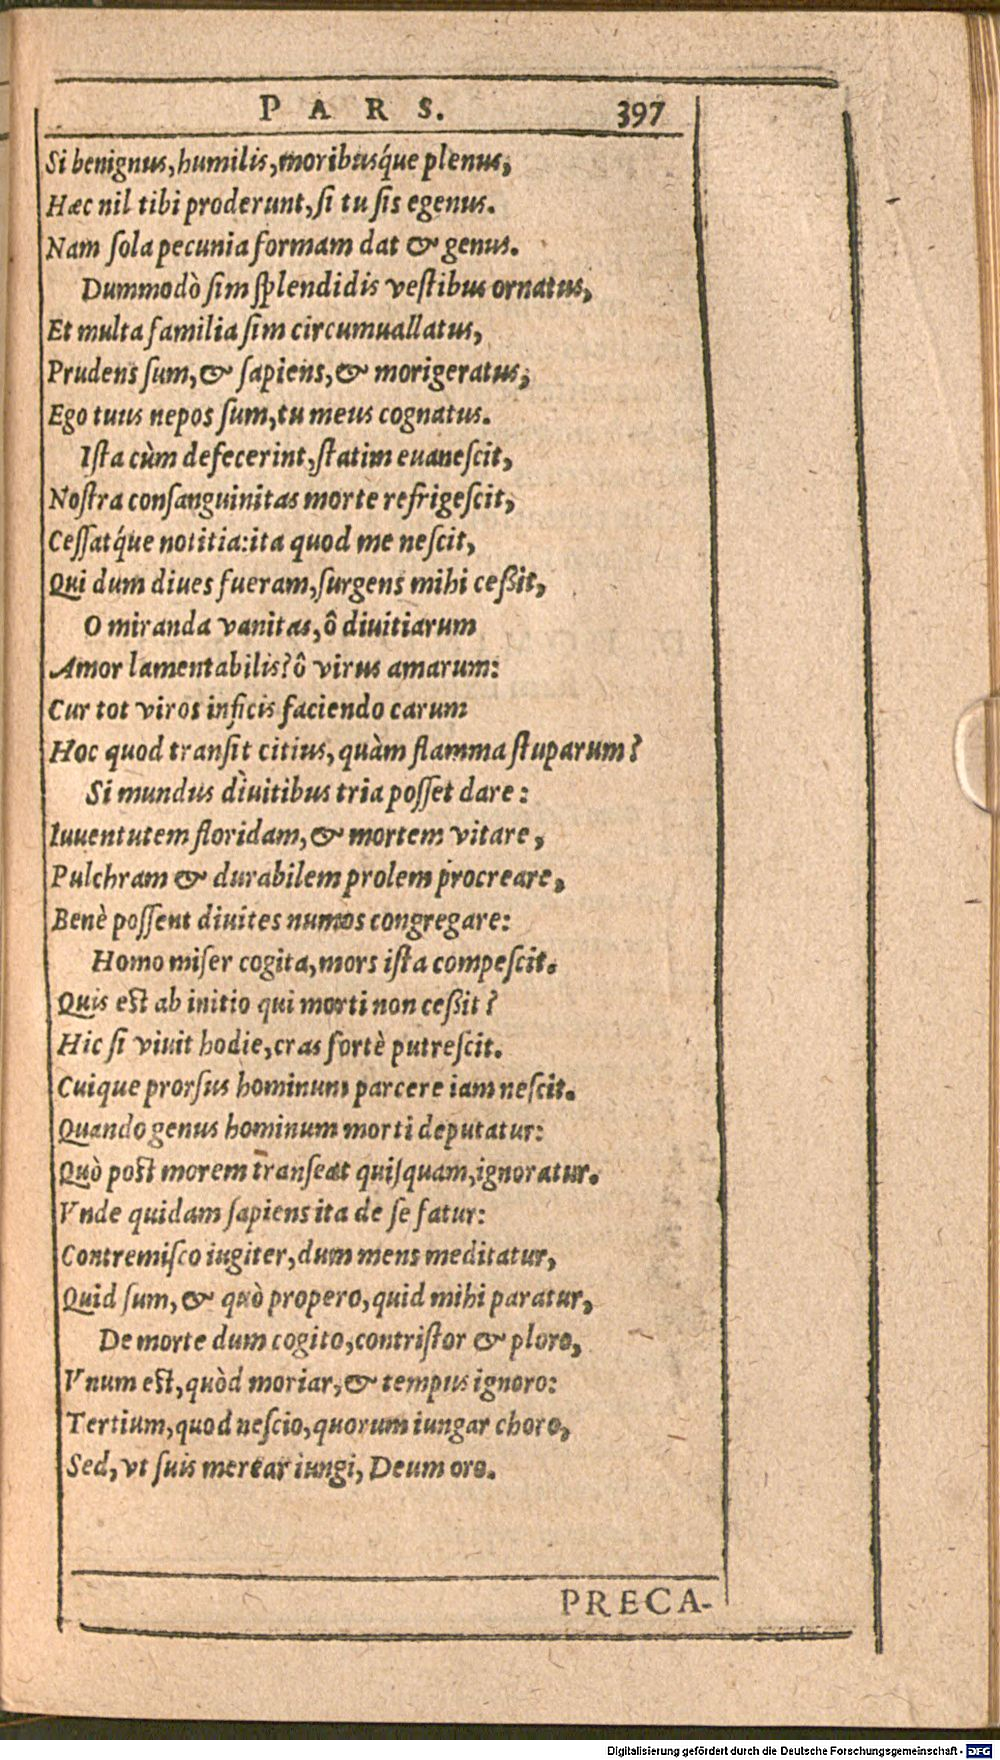 PARS. 397
Si benignus, humilis, moribusq́ue plenus,
Hæc nil tibi proderunt, si tu sis egenus.
Nam sola pecunia formam dat & genus.
Dummodò sim splendidis vestibus ornatus,
Et multa familia sim circumuallatus,
Prudens sum, & sapiens, & morigeratus,
Ego tuus nepos sum, tu meus cognatus.
Ista cùm defecerint, statim euanescit,
Nostra consanguinitas morte refrigescit,
Cessatq́ue notitia: ita quod me nescit,
Qui dum diues fueram, surgens mihi ceßit,
O miranda vanitas, ô diuitiarum
Amor lamentabilis? ô virus amarum:
Cur tot viros inficis faciendo carum
Hoc quod transit citius, quàm flamma stuparum?
Si mundus diuitibus tria posset dare:
Iuuentutem floridam, & mortem vitare,
Pulchram & durabilem prolem procreare,
Benè possent diuites numos congregare:
Homo miser cogita, mors ista compescit.
Quis est ab initio qui morti non ceßit?
Hic si viuit hodie, cras fortè putrescit.
Cuique prorsus hominum parcere iam nescit.
Quando genus hominum morti deputatur:
Quò post morem transeat quisquam, ignoratur.
Vnde quidam sapiens ita de se fatur:
Contremisco iugiter, dum mens meditatur,
Quid sum, & quò propero, quid mihi paratur,
De morte dum cogito, contristor & ploro,
Vnum est, quòd moriar, & tempus ignoro:
Tertium, quod nescio, quorum iungar choro,
Sed, vt suis merear iungi, Deum oro.
PRECA-
Digitalisierung gefördert durch die Deutsche Forschungsgemeinschaft - DFG